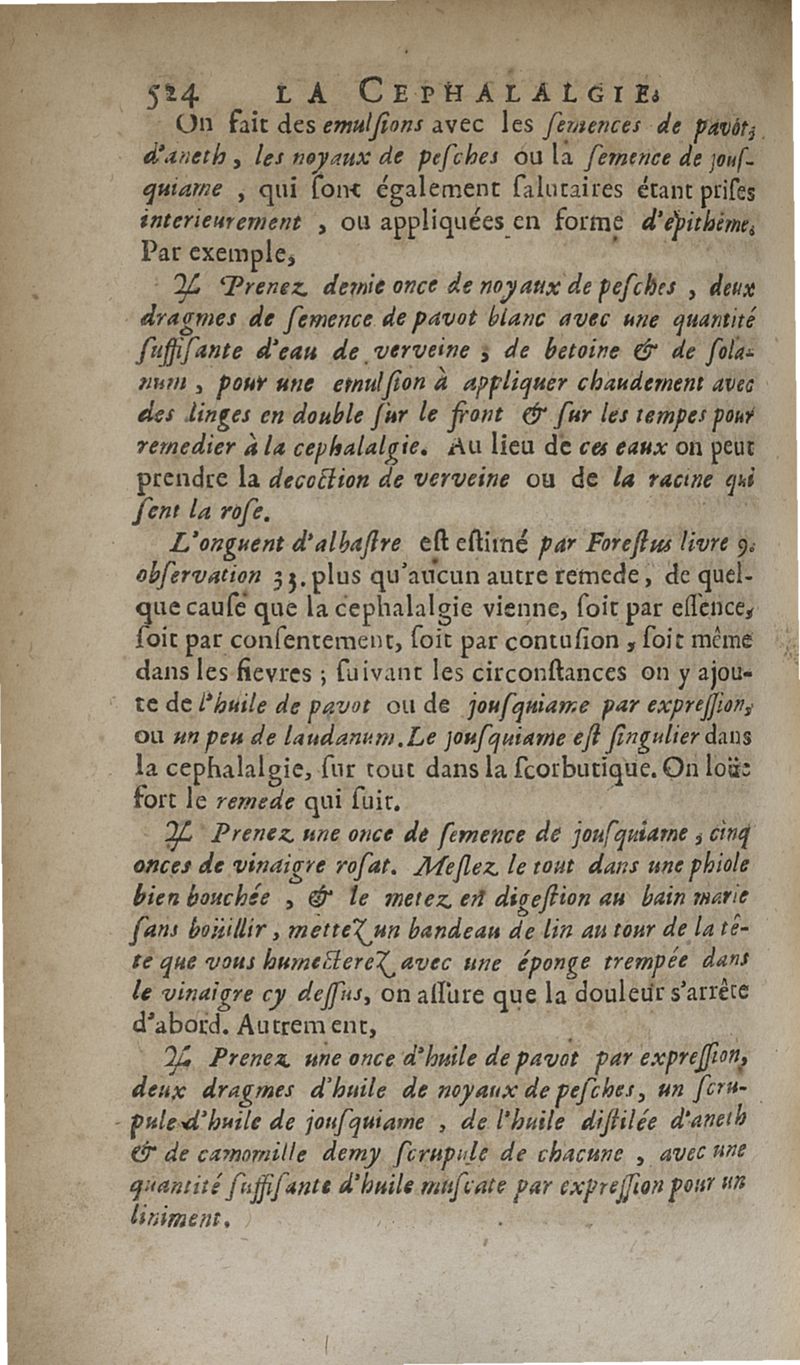 524 LA CEPHALALGIE.
On fait des emulſions avec les ſemences de pavot,
d'aneth, les noyaux de peſches ou la ſemence de jouſ-
quiame, qui ſont également ſalutaires étant priſes
interieurement, ou appliquées en forme d'epithéme.
Par exemple,
♃ Prenez demie once de noyaux de peſches, deux
dragmes de ſemence de pavot blanc avec une quantité
ſuffiſante d'eau de verveine, de betoine & de ſola-
num, pour une emulſion à appliquer chaudement avec
des linges en double ſur le front & ſur les tempes pour
remedier à la cephalalgie. Au lieu de ces eaux on peut
prendre la decoction de verveine ou de la racine qui
ſent la roſe.
L'onguent d'albaſtre eſt eſtimé par Foreſtus livre 9.
obſervation 33. plus qu'aucun autre remede, de quel-
que cauſe que la cephalalgie vienne, ſoit par eſſence,
ſoit par conſentement, ſoit par contuſion, ſoit même
dans les fievres; ſuivant les circonſtances on y ajou-
te de l'huile de pavot ou de jouſquiame par expreſſion,
ou un peu de laudanum. Le jouſquiame eſt ſingulier dans
la cephalalgie, ſur tout dans la ſcorbutique. On loüe
fort le remede qui ſuit.
♃ Prenez une once de ſemence de jouſquiame, cinq
onces de vinaigre roſat. Meſlez le tout dans une phiole
bien bouchée, & le metez en digeſtion au bain marie
ſans boüillir, mettez un bandeau de lin au tour de la tê-
te que vous humecterez avec une éponge trempée dans
le vinaigre cy deſſus, on aſſure que la douleur s'arrête
d'abord. Autrement,
♃ Prenez une once d'huile de pavot par expreſſion,
deux dragmes d'huile de noyaux de peſches, un ſcru-
pule d'huile de jouſquiame, de l'huile diſtilée d'aneth
& de camomille demy ſcrupule de chacune, avec une
quantité ſuffiſante d'huile muſcate par expreſſion pour un
liniment.